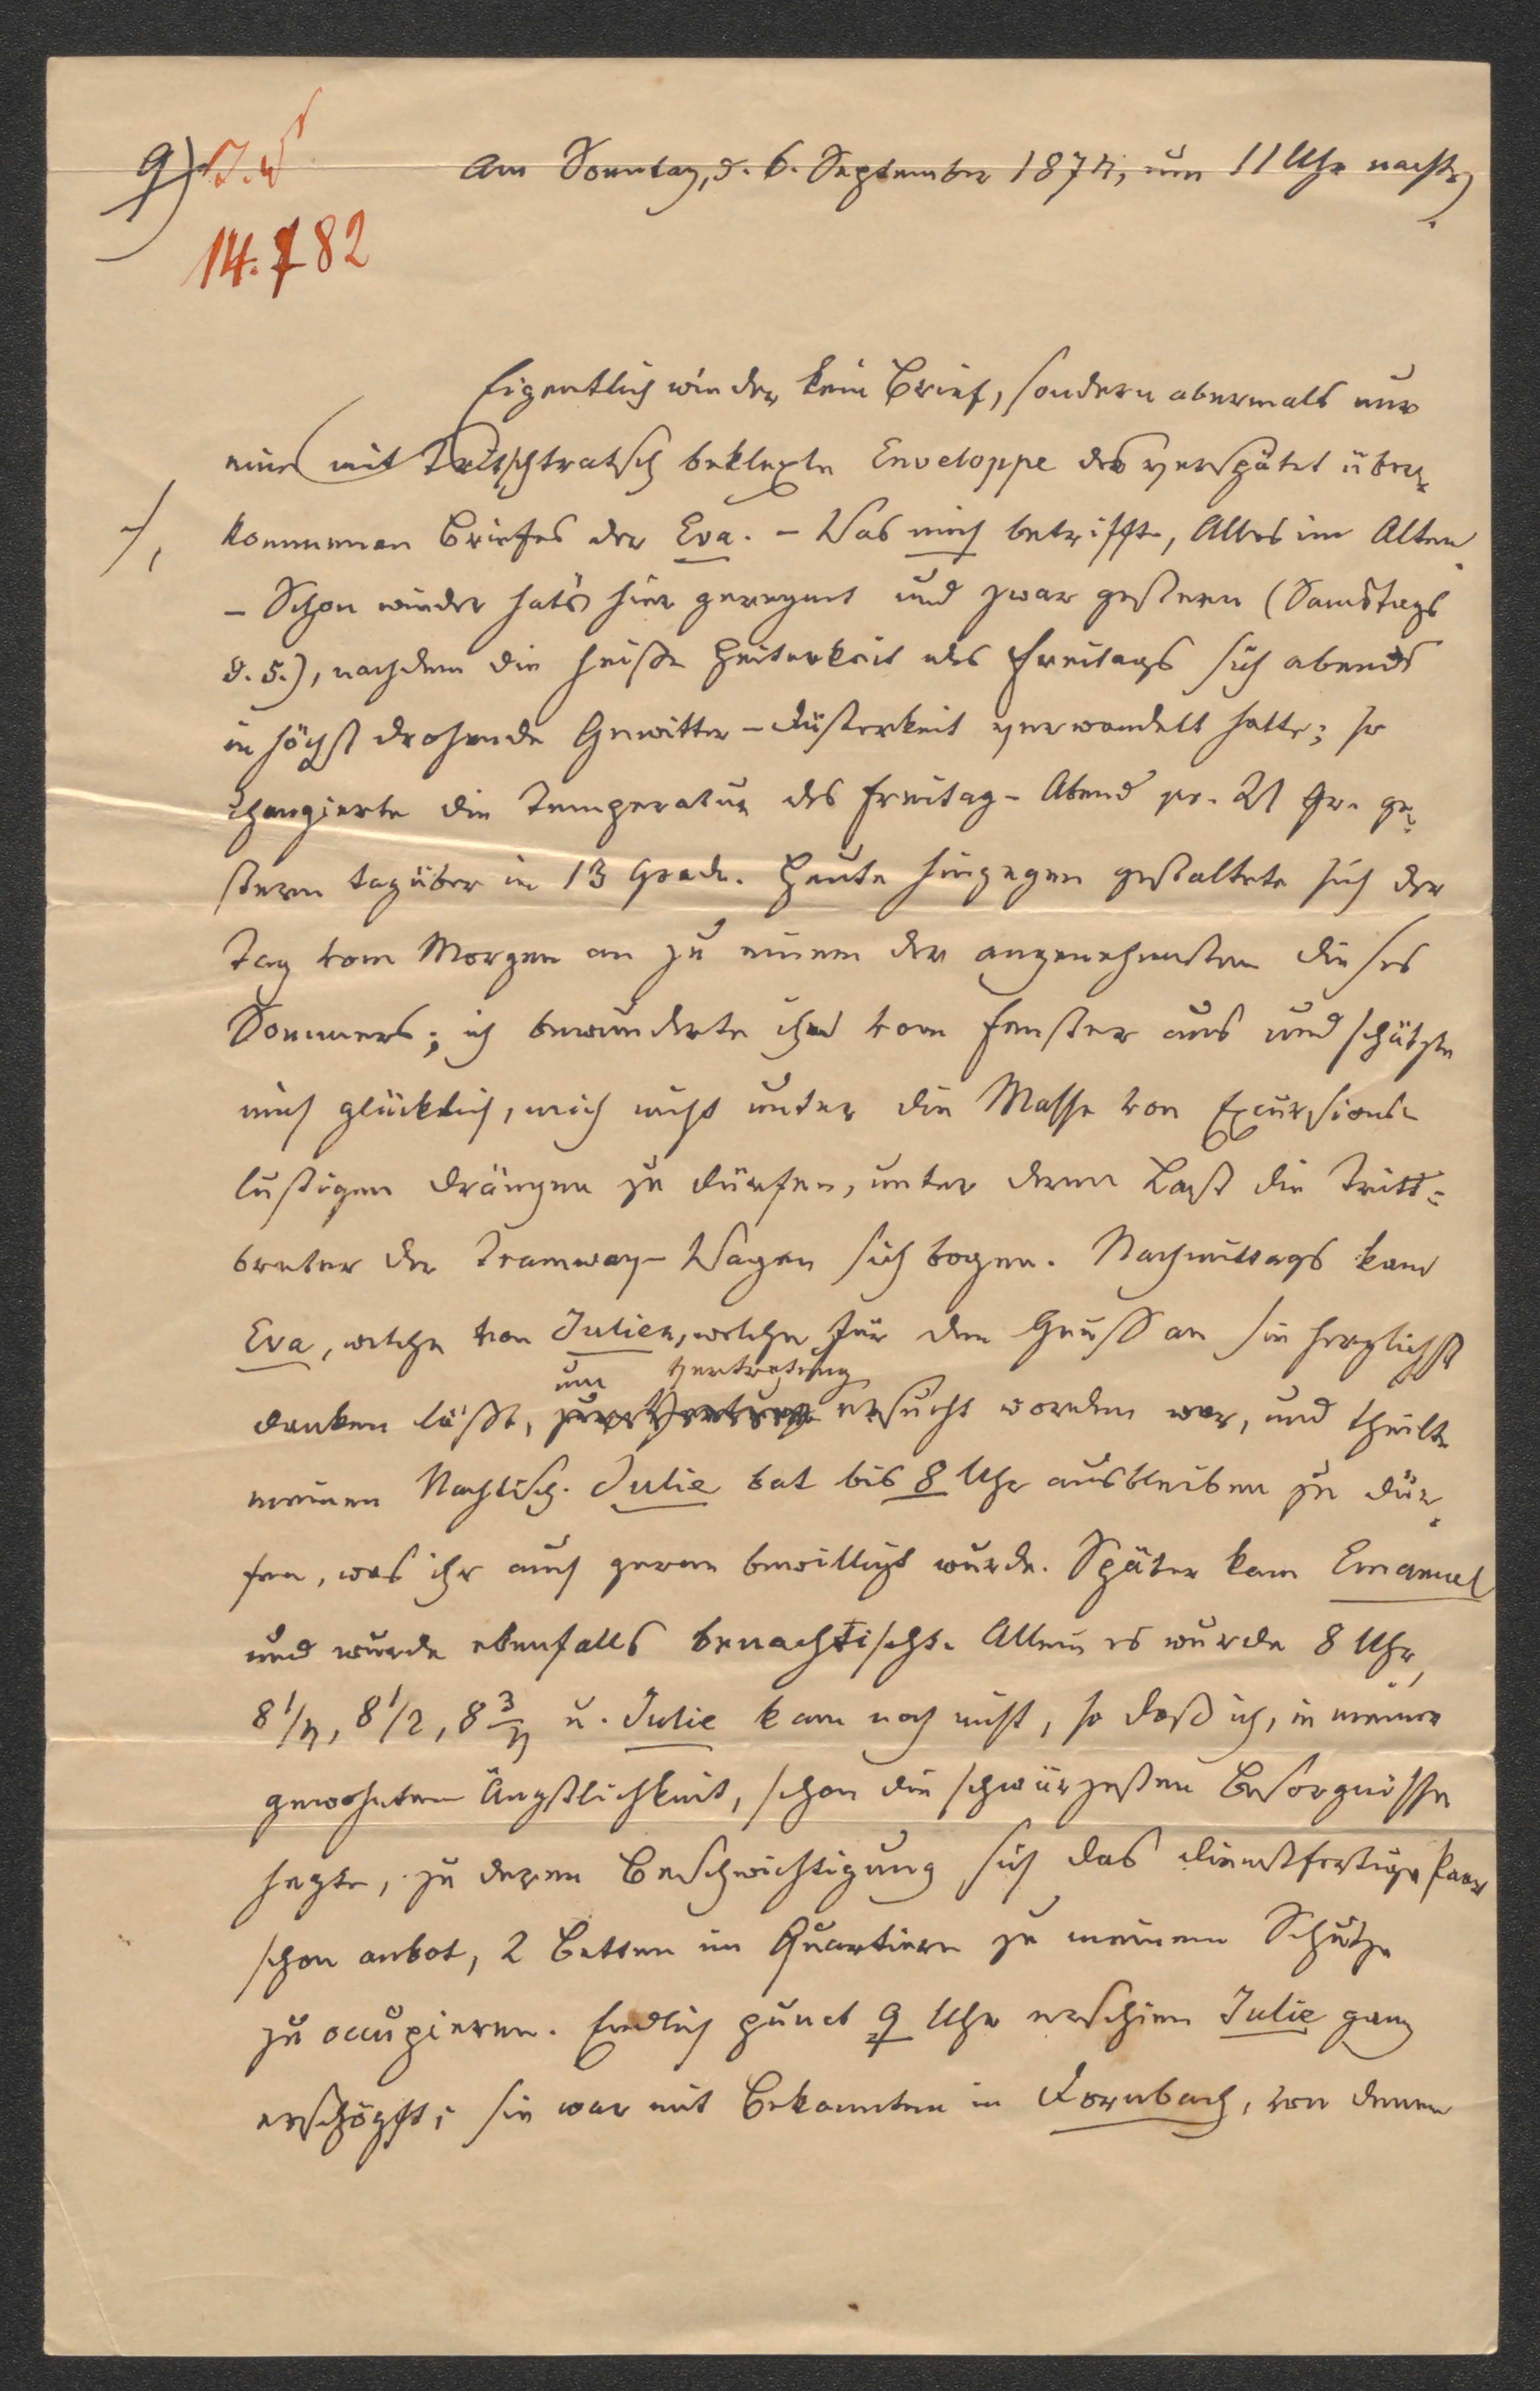 9) J. W
Am Sonntag, d. 6. September 1874, um 11 Uhr nachts
14.782
Eigentlich wieder kein Brief, sondern abermals nur
eine mit Tritschtratsch beklexte Enveloppe des verspätet über-
kommenen Briefes der Eva. – Was mich betrifft, Alles im Alten.
– Schon wieder hat's hier geregnet und zwar gestern (Samstags
d. 5.), nachdem die heiße Heiterkeit des Freitags sich abends
in höchst drohende Gewitter-Düsterkeit verwandelt hatte; so
changierte die Temperatur des Freitag-Abend pr. 21 Gr. ge-
stern tagüber in 13 Grade. Heute hingegen gestaltete sich der
Tag vom Morgen an zu einem der angenehmsten dieses
Sommers; ich bewunderte ihn vom Fenster aus und schätzte
mich glücklich, mich nicht unter die Masse von Excursions-
lustigen drängen zu dürfen, unter deren Last die Tritt=
breter der Tramway-Wagen sich bogen. Nachmittags kam
Eva, welche von Julien, welche für den Gruß an sie herzlichst
um Vertretung
danken läßt, ersucht worden war, und theilte
meinen Nachtisch. Julie bat bis 8 Uhr ausbleiben zu dür-
fen, was ihr auch gerne bewilligt wurde. Später kam Emanuel
und wurde ebenfalls benachtischt. Allein es wurde 8 Uhr,
8 1/4, 8 1/2, 8 3/4 u. Julie kam noch nicht, so daß ich, in meiner
gewohnten Ängstlichkeit, schon die schwärzesten Besorgnisse
hegte, zu deren Beschwichtigung sich das dienstfertige Paar
schon anbot, 2 Betten im Quartiere zu meinem Schutze
zu occupieren. Endlich punct 9 Uhr erschien Julie ganz
erschöpft; sie war mit Bekannten in Dornbach, von denen